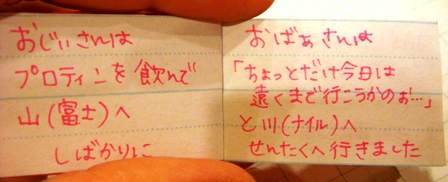 おじぃさんは
プロティンを飲んで
山(富士)へ
しばかりに
おばぁさんは
「ちょっとだけ今日は
遠くまで行こうかのぉ…」
と川(ナイル)へ
せんたくへ行きました